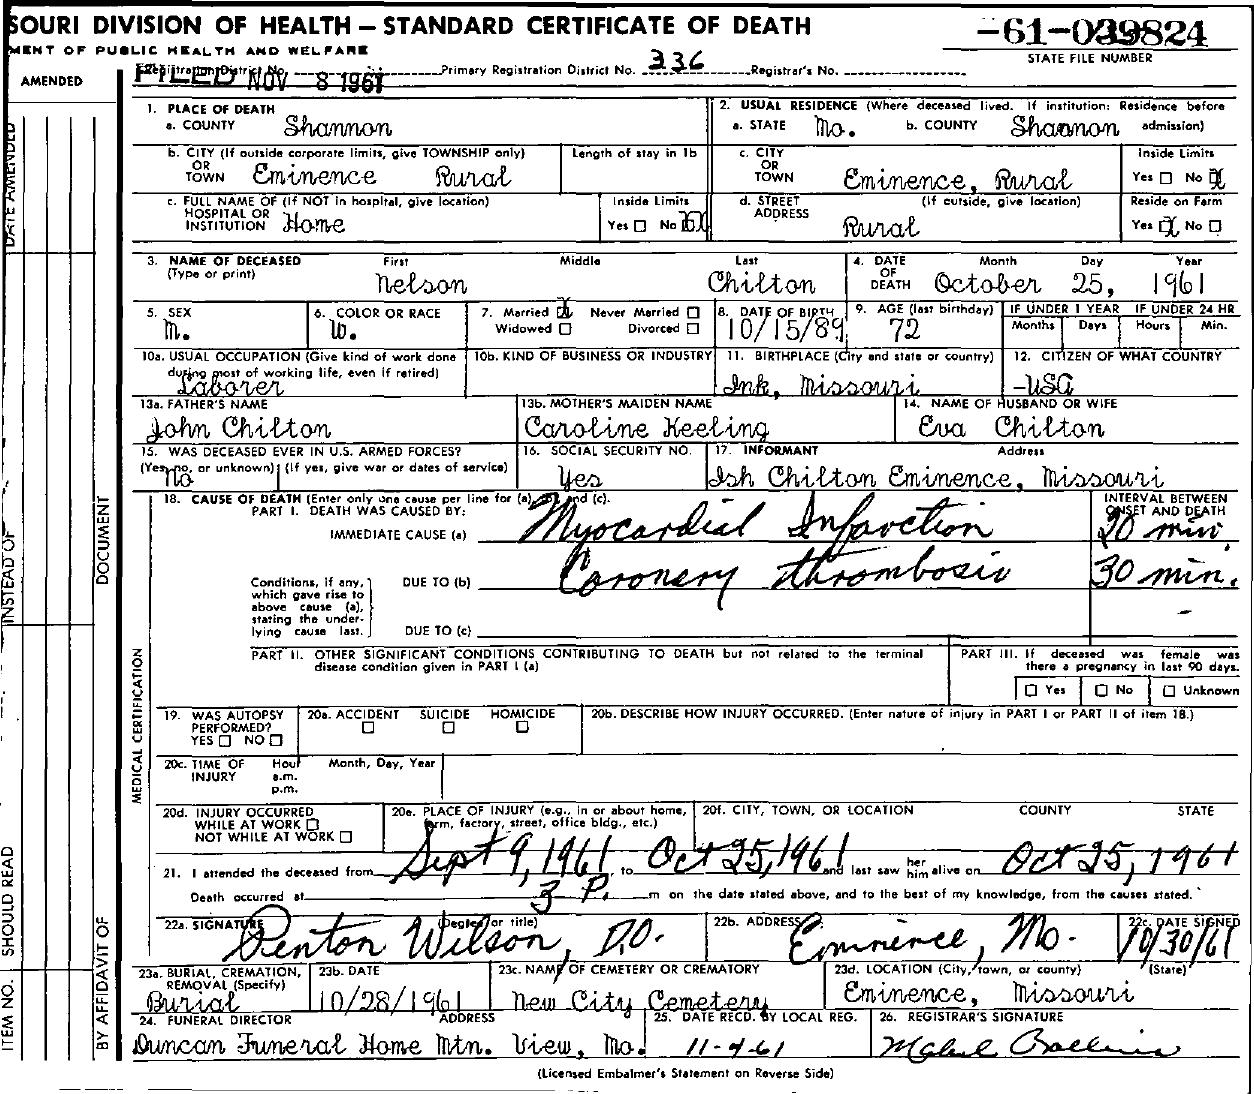 SOURI DIVISION OF HEALTH — STANDARD CERTIFICATE OF DEATH
-61-039824
MENT OF PUBLIC HEALTH AND WELFARE
STATE FILE NUMBER
AMENDED
FILED NOV 8 1961
Registration District No. Primary Registration District No. 336 Registrar's No.
1. PLACE OF DEATH
a. COUNTY Shannon
2. USUAL RESIDENCE (Where deceased lived. If institution: Residence before admission)
a. STATE Mo. b. COUNTY Shannon
b. CITY (If outside corporate limits, give TOWNSHIP only) OR TOWN Eminence Rural
Length of stay in 1b
c. CITY OR TOWN Eminence, Rural
Inside Limits Yes No X
c. FULL NAME OF (If NOT in hospital, give location) HOSPITAL OR INSTITUTION Home
Inside Limits Yes No X
d. STREET ADDRESS (If outside, give location) Rural
Reside on Farm Yes X No
3. NAME OF DECEASED (Type or print) First Middle Last
Nelson Chilton
4. DATE OF DEATH Month Day Year
October 25, 1961
5. SEX M.
6. COLOR OR RACE W.
7. Married X Never Married
Widowed Divorced
8. DATE OF BIRTH 10/15/89
9. AGE (last birthday) 72
IF UNDER 1 YEAR Months Days
IF UNDER 24 HR Hours Min.
10a. USUAL OCCUPATION (Give kind of work done during most of working life, even if retired) Laborer
10b. KIND OF BUSINESS OR INDUSTRY
11. BIRTHPLACE (City and state or country) Ink, Missouri
12. CITIZEN OF WHAT COUNTRY -USA
13a. FATHER'S NAME John Chilton
13b. MOTHER'S MAIDEN NAME Caroline Keeling
14. NAME OF HUSBAND OR WIFE Eva Chilton
15. WAS DECEASED EVER IN U.S. ARMED FORCES?
(Yes, no, or unknown) (If yes, give war or dates of service) No
16. SOCIAL SECURITY NO. Yes
17. INFORMANT Address
Ish Chilton Eminence, Missouri
18. CAUSE OF DEATH (Enter only one cause per line for (a), (b), and (c).
PART I. DEATH WAS CAUSED BY:
INTERVAL BETWEEN ONSET AND DEATH
IMMEDIATE CAUSE (a) Myocardial Infarction 20 min.
Conditions, if any, which gave rise to above cause (a), stating the underlying cause last.
DUE TO (b) Coronery thrombosis 30 min.
DUE TO (c) -
PART II. OTHER SIGNIFICANT CONDITIONS CONTRIBUTING TO DEATH but not related to the terminal disease condition given in PART I (a)
PART III. If deceased was female was there a pregnancy in last 90 days.
Yes No Unknown
19. WAS AUTOPSY PERFORMED? YES NO
20a. ACCIDENT SUICIDE HOMICIDE
20b. DESCRIBE HOW INJURY OCCURRED. (Enter nature of injury in PART I or PART II of item 18.)
20c. TIME OF INJURY Hour a.m. p.m. Month, Day, Year
20d. INJURY OCCURRED
WHILE AT WORK
NOT WHILE AT WORK
20e. PLACE OF INJURY (e.g., in or about home, farm, factory, street, office bldg., etc.)
20f. CITY, TOWN, OR LOCATION COUNTY STATE
21. I attended the deceased from Sept 9, 1961 to Oct 25, 1961 and last saw her him alive on Oct 25, 1961
Death occurred at 3 P. m on the date stated above, and to the best of my knowledge, from the causes stated.
22a. SIGNATURE (Degree or title) Penton Wilson, D.O.
22b. ADDRESS Eminence, Mo.
22c. DATE SIGNED 10/30/61
23a. BURIAL, CREMATION, REMOVAL (Specify) Burial
23b. DATE 10/28/1961
23c. NAME OF CEMETERY OR CREMATORY New City Cemetery
23d. LOCATION (City, town, or county) (State) Eminence, Missouri
24. FUNERAL DIRECTOR ADDRESS
Duncan Funeral Home Mtn. View, Mo.
25. DATE RECD. BY LOCAL REG. 11-4-61
26. REGISTRAR'S SIGNATURE
(Licensed Embalmer's Statement on Reverse Side)
DATE AMENDED
INSTEAD OF
DOCUMENT
MEDICAL CERTIFICATION
SHOULD READ
ITEM NO.
BY AFFIDAVIT OF